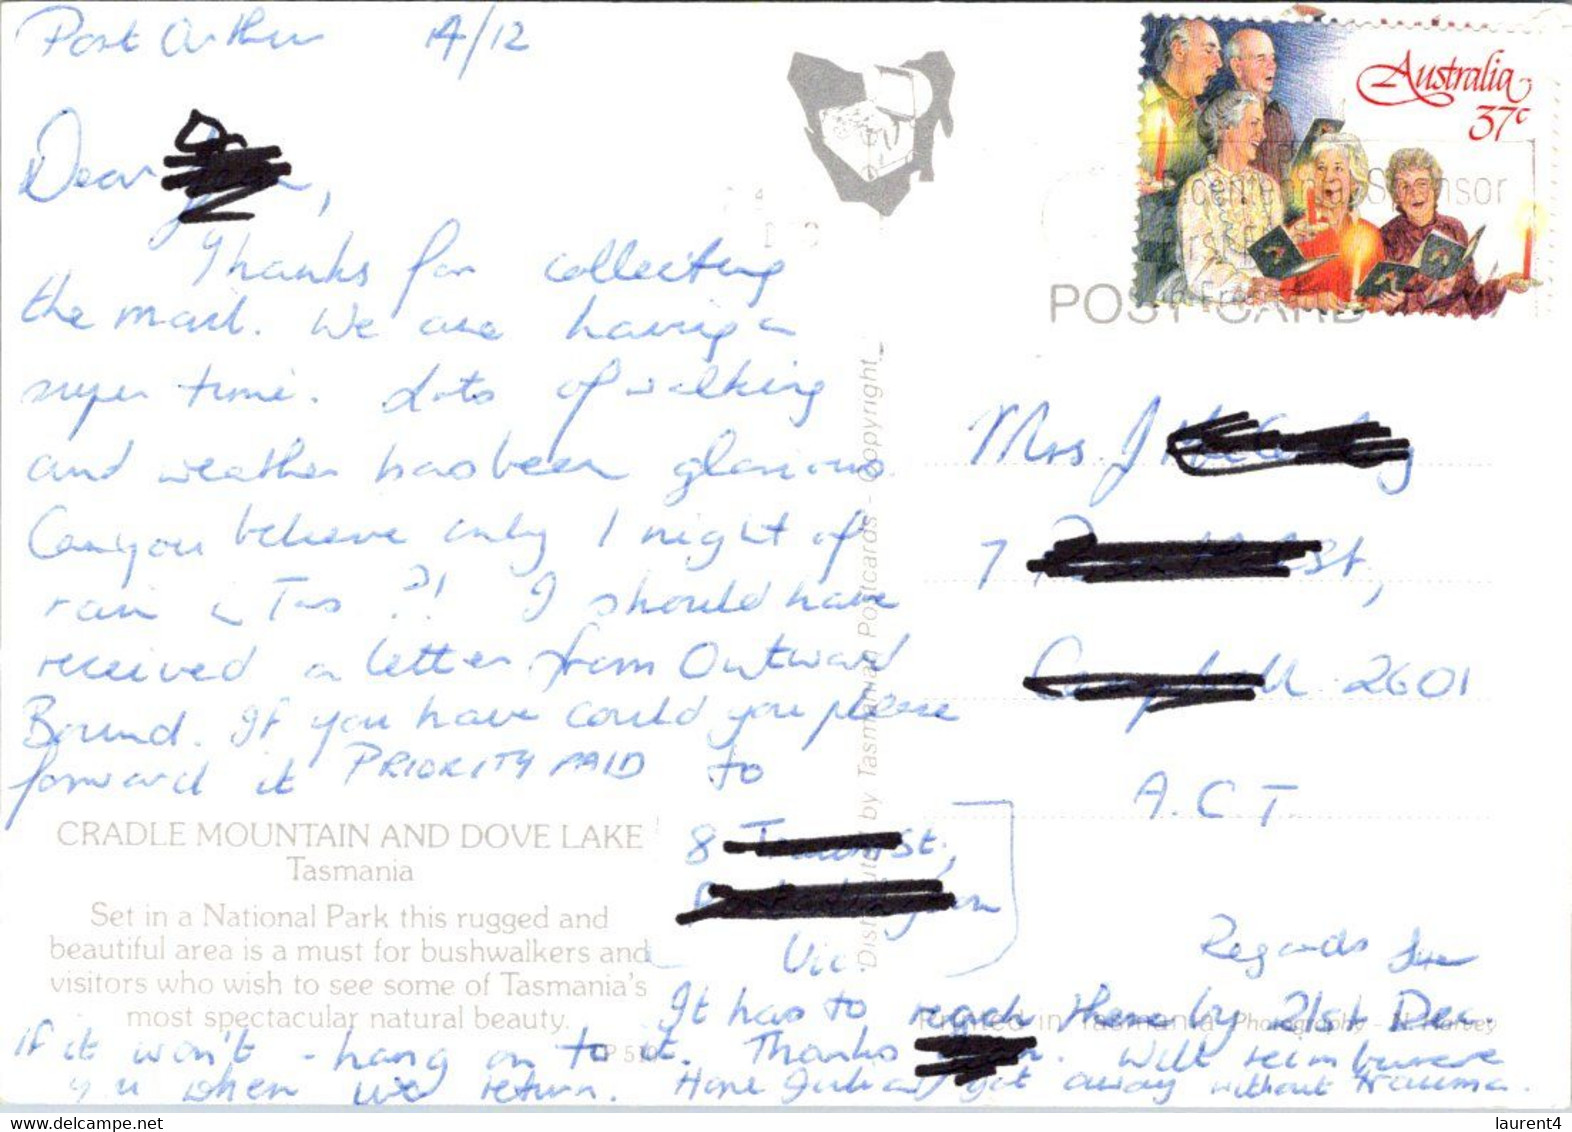 Port Arthur 14/12
Dear
Thanks for collecting
the mail. We are having a
super time. Lots of walking
and weather has been glorious.
Can you believe only 1 night of
rain in Tas ?! I should have
received a letter from Outward
Bound. If you have could you please
forward it PRIORITY PAID to
8 St.,
Vic.
It has to reach there by 21st Dec.
If it won't - hang on to it. Thanks . Will reimburse
you when we return. Hope Julian got away without trauma.
Regards Sue
CRADLE MOUNTAIN AND DOVE LAKE
Tasmania
Set in a National Park this rugged and
beautiful area is a must for bushwalkers and
visitors who wish to see some of Tasmania's
most spectacular natural beauty.
Distributed by Tasmanian Postcards - Copyright
Australia
37c
Sponsor
POST CARD
Mrs J
7 St,
2601
A.C.T.
Printed in Tasmania Photography - N. Harvey
delcampe.net
laurent4